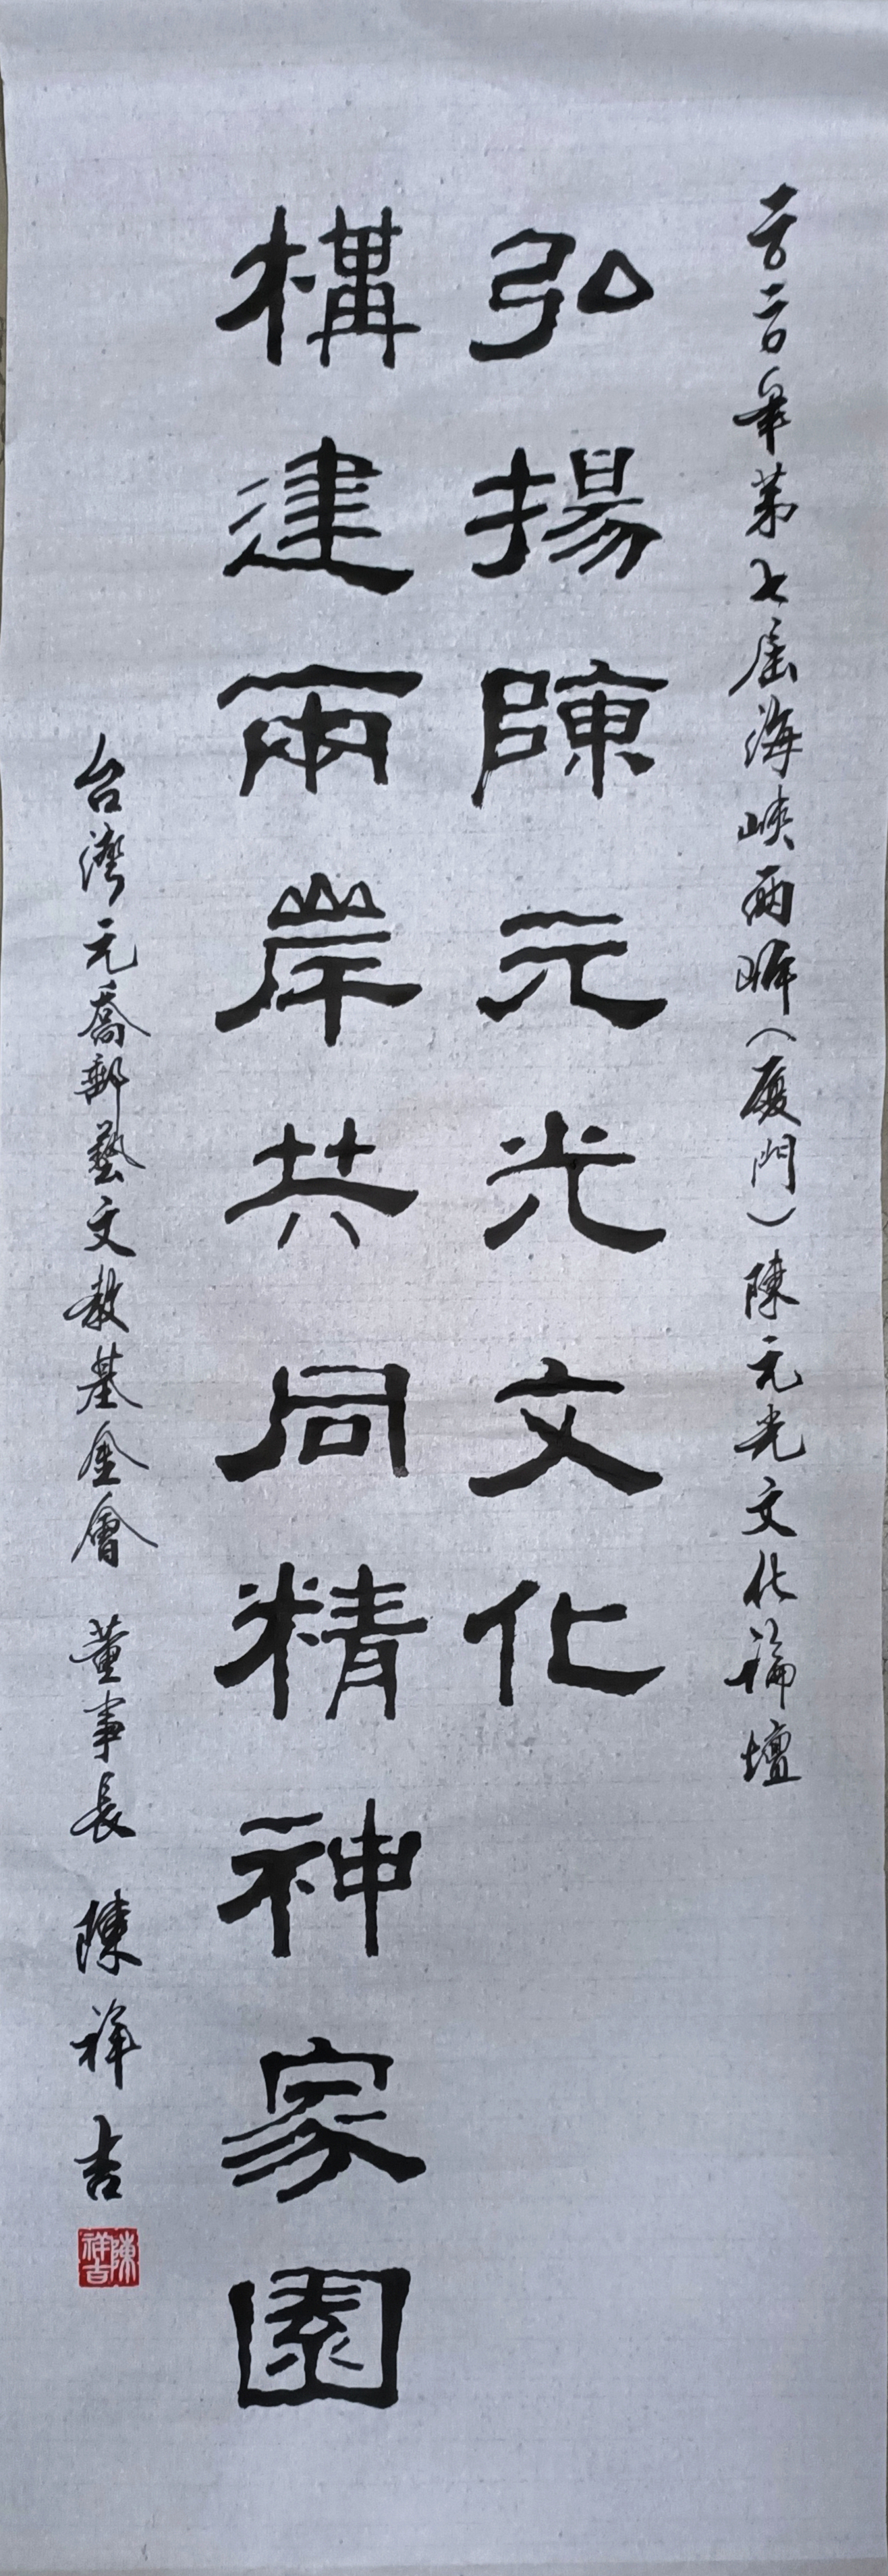 二〇二〇年第七屆海峽兩岸（廈門）陳元光文化論壇
弘揚陳元光文化
構建兩岸共同精神家園
台灣元喬郵藝文教基金會 董事長 陳祥吉
陳祥吉